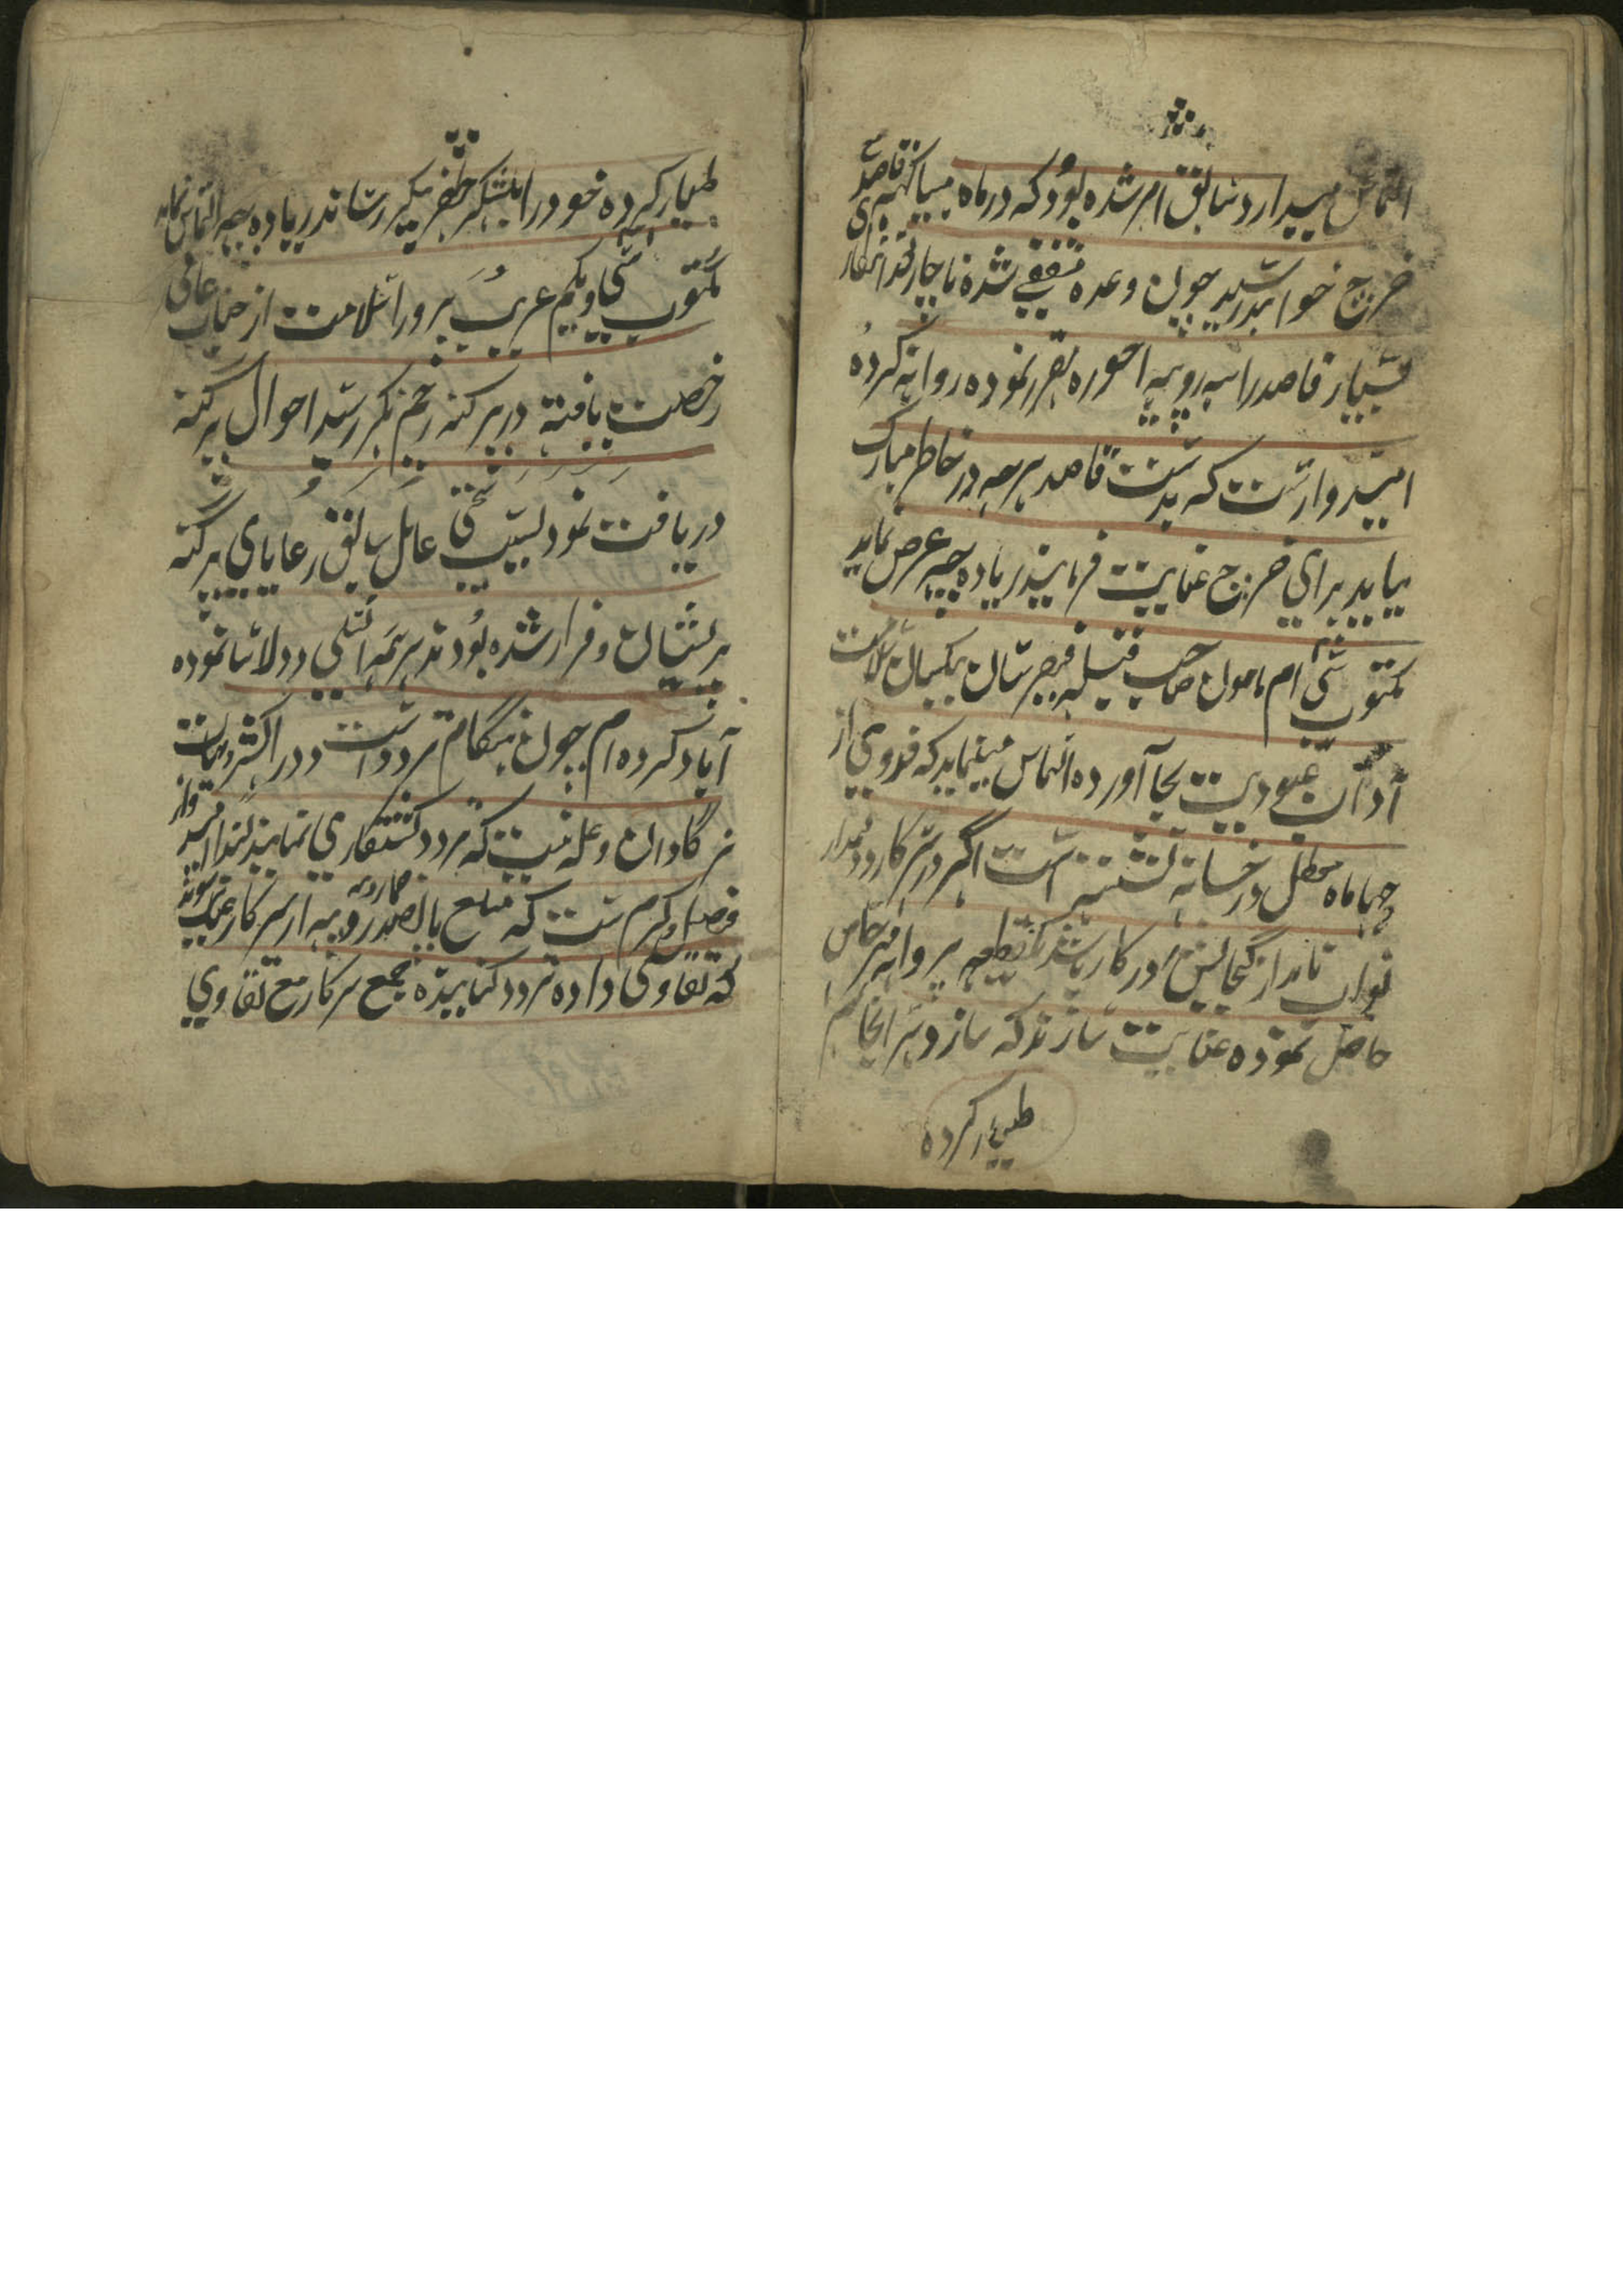 التماس میدارد سابق امر شده بود که در ماه بیساکهه قاصد مع
خرچ خواهد رسید چون وعده منقضی شده ناچار فدا انتظار
بسیار قاصد را سه روپیه اجوره مقرر نموده روانه کرده
امیدوارست که بدست قاصد هرچه در خاطر مبارک
بیاید برای خرچ عنایت فرمایند زیاده چه عرض نماید
مکتوب سی ام مامون صاحب قبله فیض رسان بیکسان سلامت
آداب عبودیت بجا آورده التماس مینماید که فدوی از
چهار ماه معطل در خانه نشسته است اگر در سرکار دولتمدار
نواب نامدار گنجایش در کار باشد قطعه پروانه مهر خاص
حاصل نموده عنایت سازند که ساز و سرانجام
طیار کرده
طیار کرده خود را بلشکر ظفر پیکر رساند زیاده چه التماس نماید
مکتوب سی و یکم غریب پرورا سلامت از جناب عالی
رخصت یافته در پرگنه رحیم نگر رسید احوال پرگنه
دریافت نمود بسبب سختی عامل سابق رعایای پرگنه
پریشان و فرار شده بودند همه را تسلی و دلاسا نموده
آباد کرده ام چون هنگام تردد است و در اکثر دیهات
نرگاوان و غله نیست که تردد کشتکاری نمایند لهذا امیدوار
فضل و کرم ست که مبلغ پانصد روپیه از سرکار عنایت شوند
که تقاوی داده تردد کنانیده جمع سرکار مع تقاوی